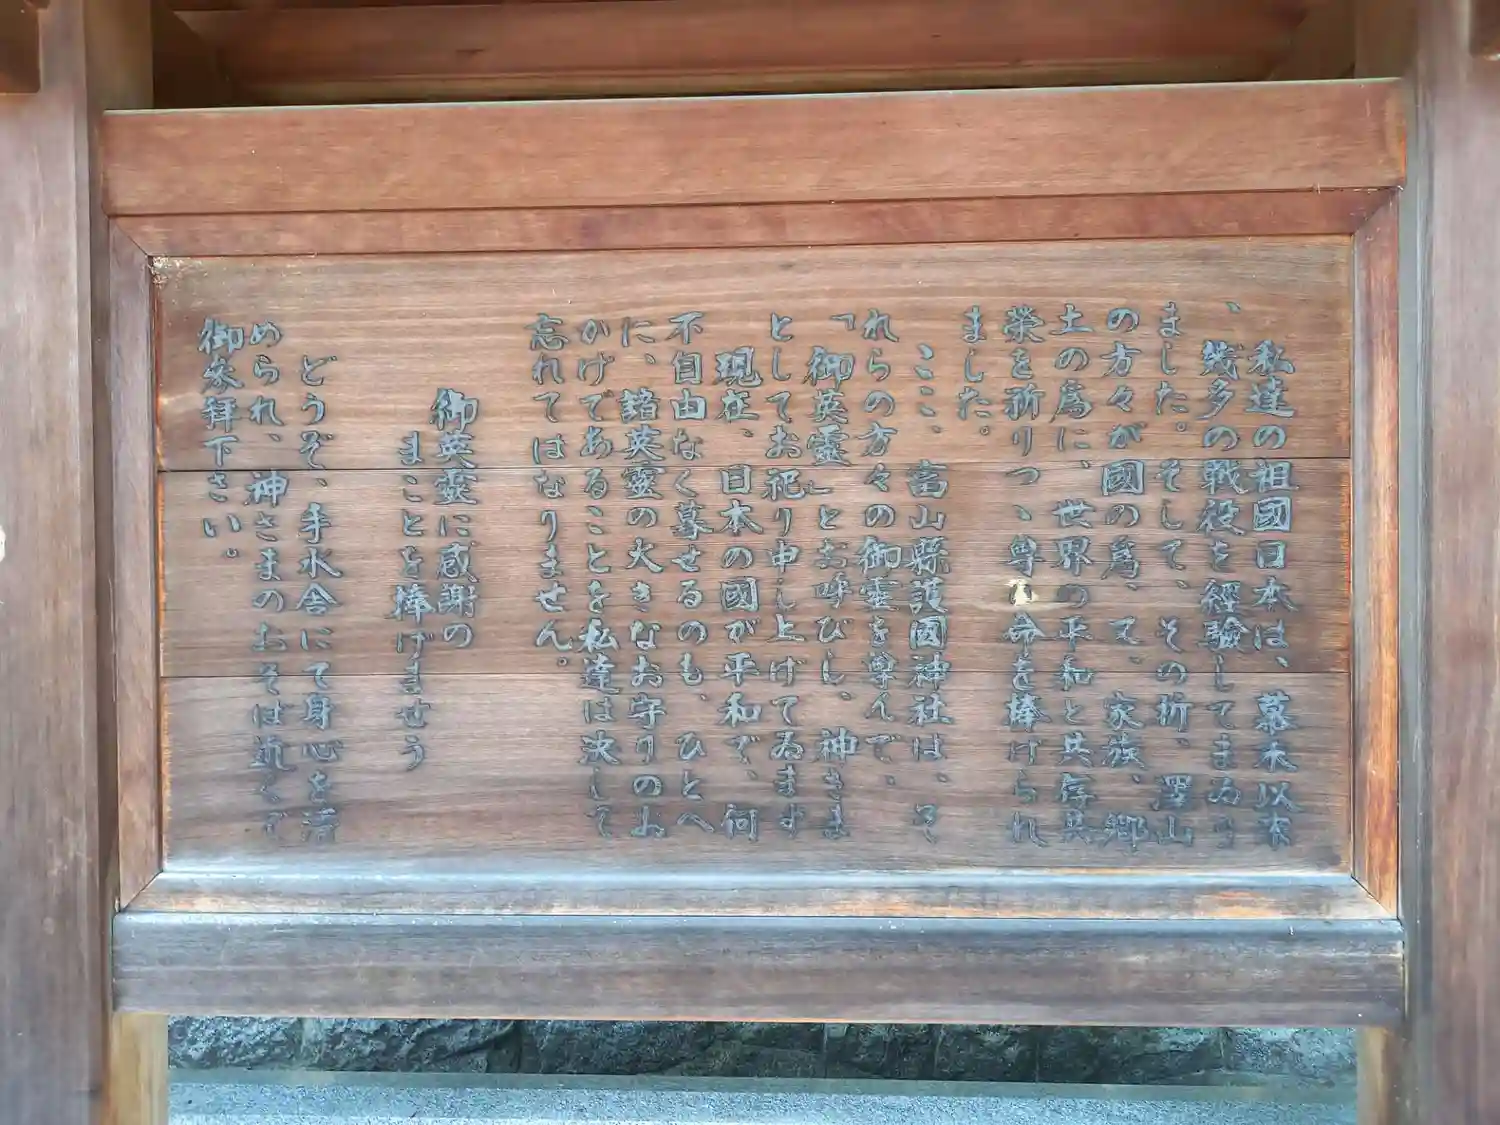 私達の祖國日本は、幕末以來
、幾多の戦役を經驗してまゐり
ました。そして、その折、澤山
の方々が國の爲、て、家族、郷
土の爲に、世界の平和と共存共
榮を祈りつゝ尊い命を捧げられ
ました。
ここ、富山縣護國神社は、そ
れらの方々の御霊を尊んで、
「御英霊」とお呼びし、神さま
としてお祀り申し上げてゐます
現在、日本の國が平和で、何
不自由なく暮せるのも、ひとへ
に、諸英霊の大きなお守りのお
かげであることを私達は決して
忘れてはなりません。
御英霊に感謝の
まことを捧げませう
どうぞ、手水舎にて身心を清
められ、神さまのおそば近くで
御参拝下さい。